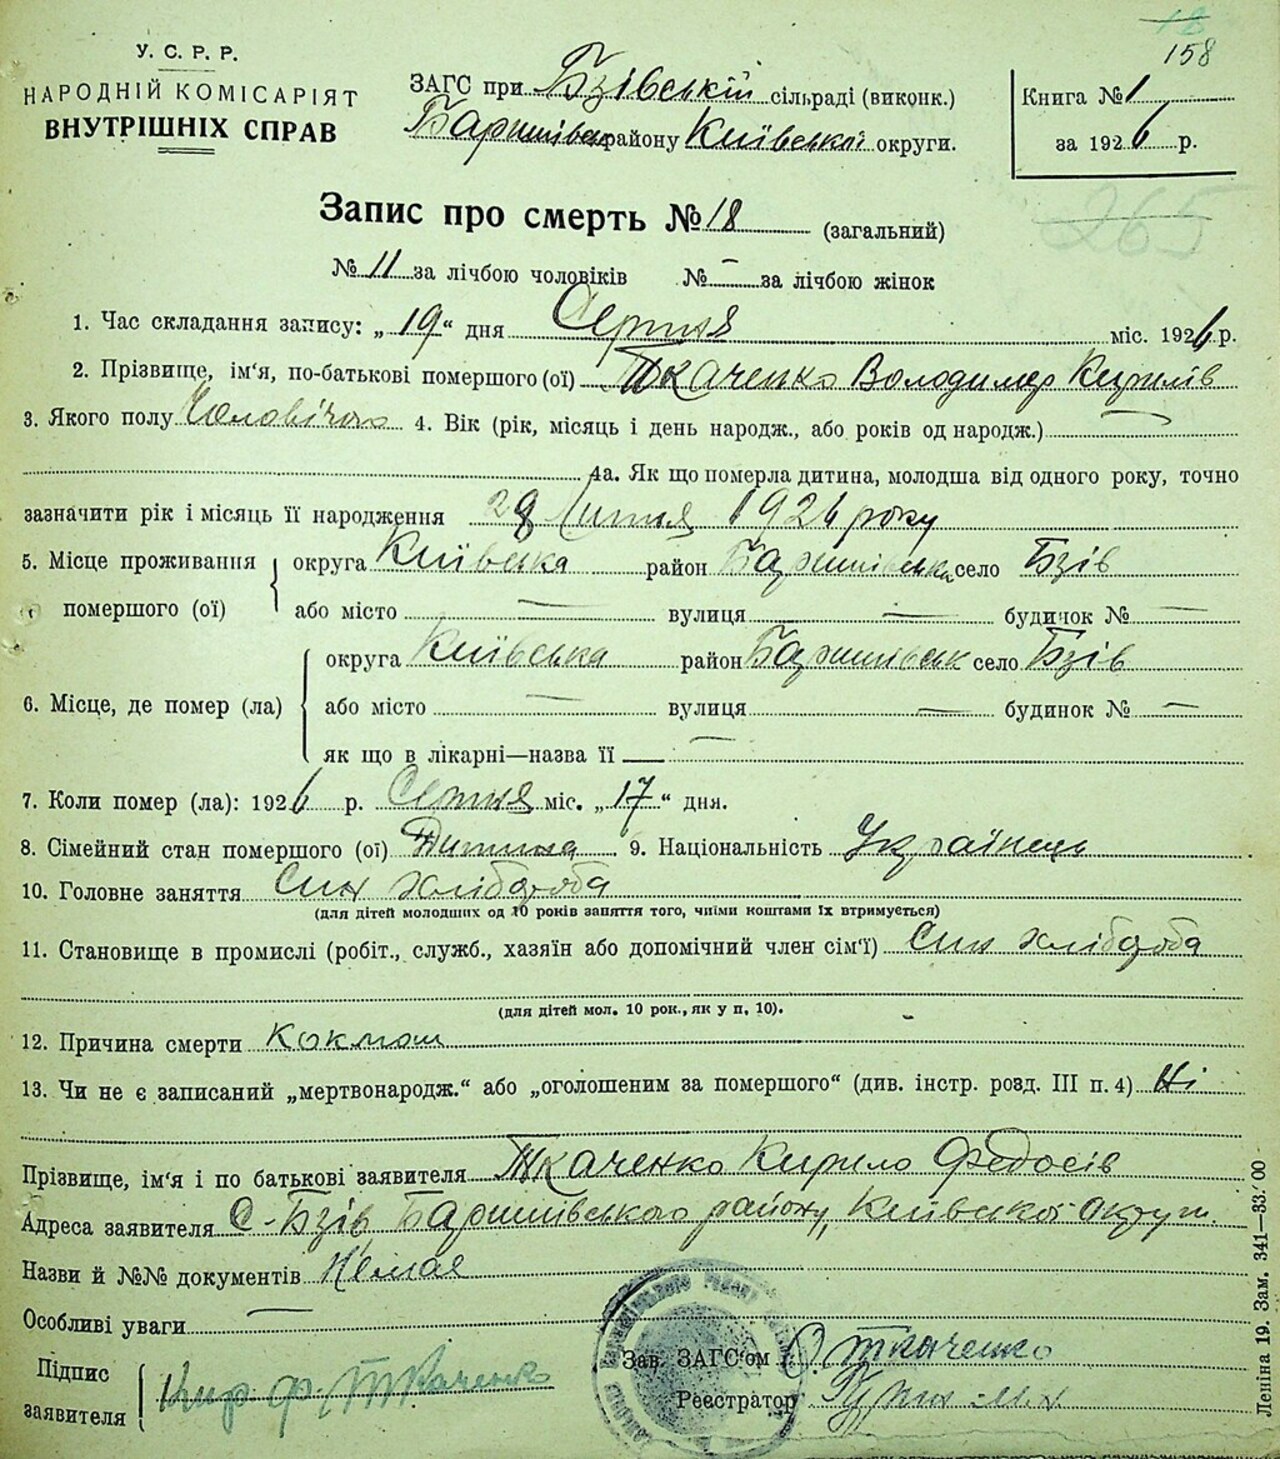 158
У. С. Р. Р.
НАРОДНІЙ КОМІСАРІЯТ
ВНУТРІШНІХ СПРАВ
ЗАГС при Бзівській сільраді (виконк.)
Баришівськ району Київської округи.
Книга № 1
за 1926 р.
265
Запис про смерть № 18 (загальний)
№ 11 за лічбою чоловіків № - за лічбою жінок
1. Час складання запису: „19“ дня Серпня міс. 1926 р.
2. Прізвище, ім‘я, по-батькові помершого (ої) Ткаченко Володимер Кирилів
3. Якого полу Чоловічого 4. Вік (рік, місяць і день народж., або років од народж.) —
4а. Як що померла дитина, молодша від одного року, точно
зазначити рік і місяць її народження 28 Липня 1926 року
5. Місце проживання помершого (ої)
округа Київська район Баришівськ село Бзів
або місто — вулиця — будинок № —
6. Місце, де помер (ла)
округа Київська район Баришівськ село Бзів
або місто — вулиця — будинок № —
як що в лікарні—назва її —
7. Коли помер (ла): 1926 р. Серпня міс. „17“ дня.
8. Сімейний стан помершого (ої) Дитина 9. Національність Українець
10. Головне заняття Син хлібороба
(для дітей молодших од 10 років заняття того, чиїми коштами їх втримується)
11. Становище в промислі (робіт., служб., хазяїн або допомічний член сім‘ї) Син хлібороба
(для дітей мол. 10 рок., як у п. 10).
12. Причина смерти Коклюш
13. Чи не є записаний „мертвонародж.“ або „оголошеним за помершого“ (див. інстр. розд. III п. 4) Ні
Прізвище, ім‘я і по батькові заявителя Ткаченко Кирило Федосів
Адреса заявителя С-Бзів Баришівського району, Київської округи.
Назви й №№ документів Немає
Особливі уваги —
Зав. ЗАГС‘ом Ткаченко
Підпис заявителя Кир Ф. Ткаченко
Реєстратор
Леніна 19. Зам. 341—33.